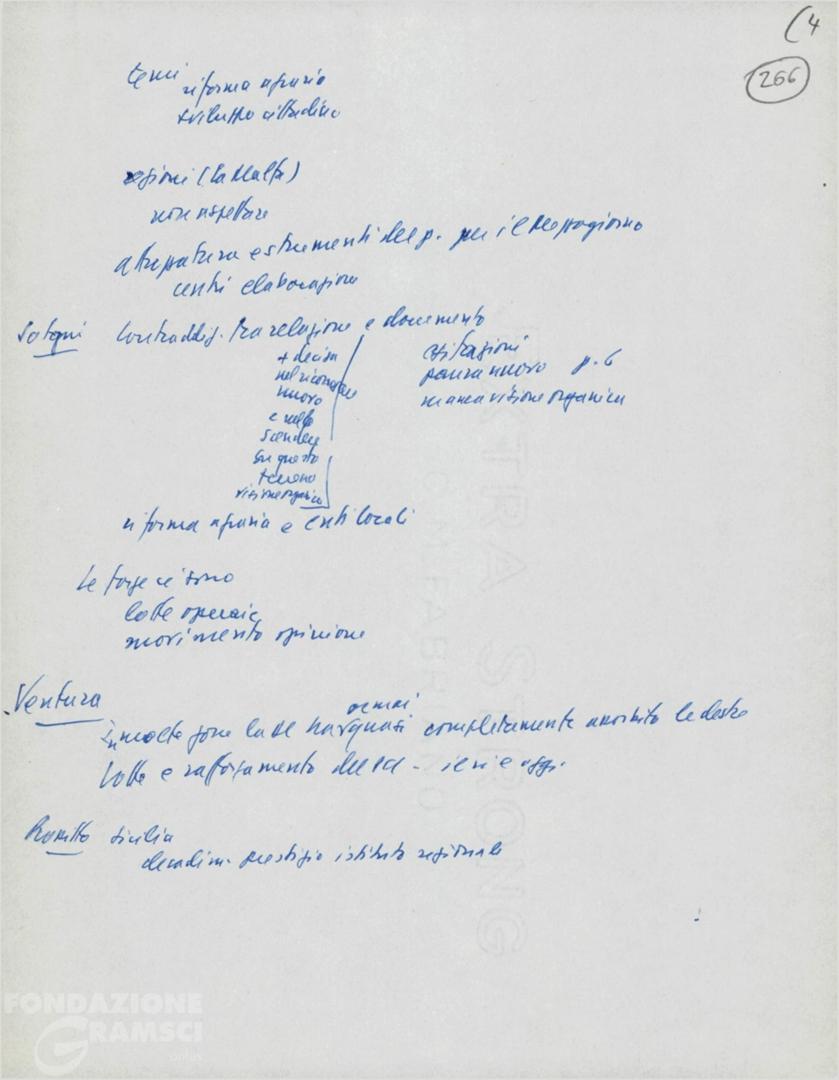 (4
266
temi
riforma agraria
sviluppo cittadino
regioni (La Malfa)
non aspettare
attrezzatura e strumenti del p. per il Mezzogiorno
centri elaborazione
contraddiz. tra relazione e documento
+ decisa
nel
nuovo
e nello
scendere
su questo
terreno
visione organica
esitazioni
paura nuovo p. 6
manca visione organica
riforma agraria e enti locali
Le forze ci sono
lotte operaie
movimento opinione
Ventura
In molte zone la DC ha quasi ormai completamente assorbito le destre
Lotte e rafforzamento del - ieri e oggi.
Sicilia
decadim. prestigio istituto regionale
EXTRA STRONG
FABRIANO
FONDAZIONE
GRAMSCI
onlus